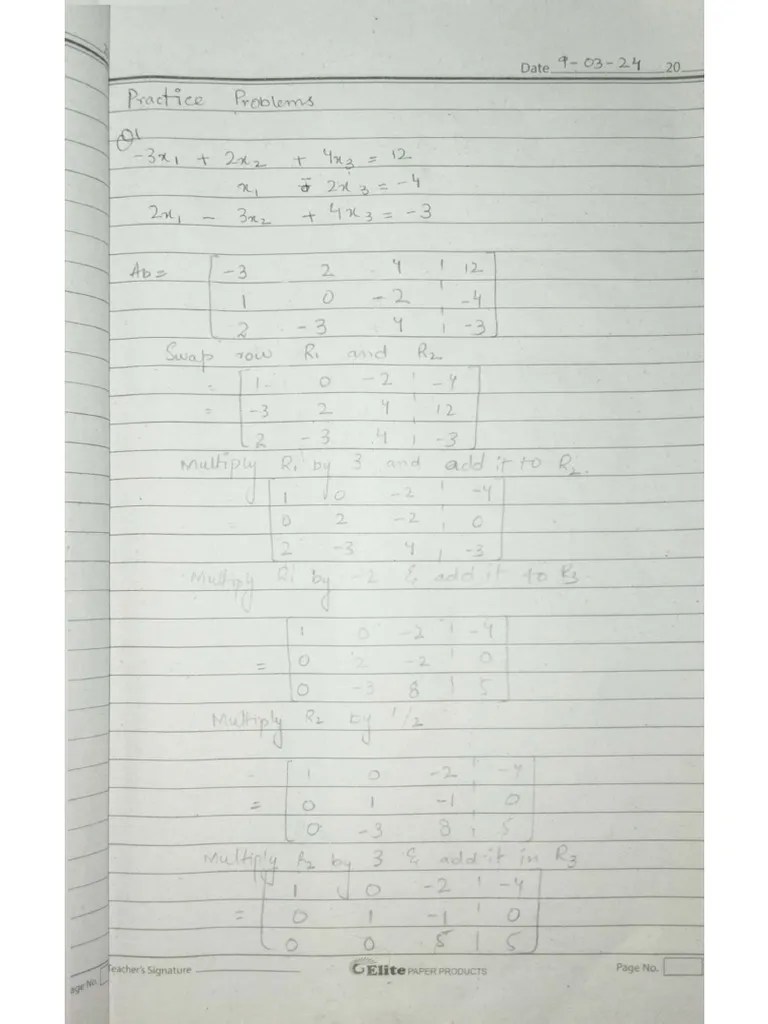 Date 9-03-24 20
Practice Problems
Q1
-3x₁ + 2x₂ + 4x₃ = 12
x₁ - 2x₃ = -4
2x₁ - 3x₂ + 4x₃ = -3
Ab = [ -3 2 4 | 12
1 0 -2 | -4
2 -3 4 | -3 ]
Swap row R₁ and R₂
= [ 1 0 -2 | -4
= -3 2 4 | 12
2 -3 4 | -3 ]
Multiply R₁ by 3 and add it to R₂.
[ 1 0 -2 | -4
0 2 -2 | 0
2 -3 4 | -3 ]
Multiply R₁ by -2 & add it to R₃
[ 1 0 -2 | -4
= 0 2 -2 | 0
0 -3 8 | 5 ]
Multiply R₂ by 1/2
[ 1 0 -2 | -4
= 0 1 -1 | 0
0 -3 8 | 5 ]
Multiply R₂ by 3 & add it in R₃
[ 1 0 -2 | -4
= 0 1 -1 | 0
0 0 5 | 5 ]
Teacher's Signature Elite PAPER PRODUCTS Page No.
age No.